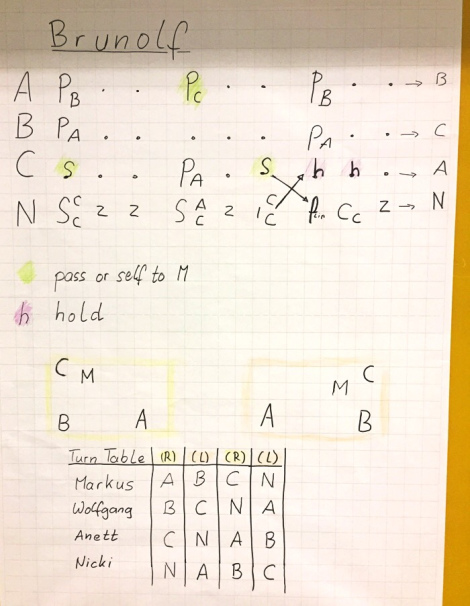 Brunolf
A P_B . . P_C . . P_B . . → B
B P_A . . . . . P_A . . → C
C S . . P_A . S h h . → A
N S^C_C 2 2 S^A_C 2 1^C_C C_C 2 → N
pass or self to M
h hold
C M
B A
M C
A B
Turn Table (R) (L) (R) (L)
Markus A B C N
Wolfgang B C N A
Anett C N A B
Nicki N A B C